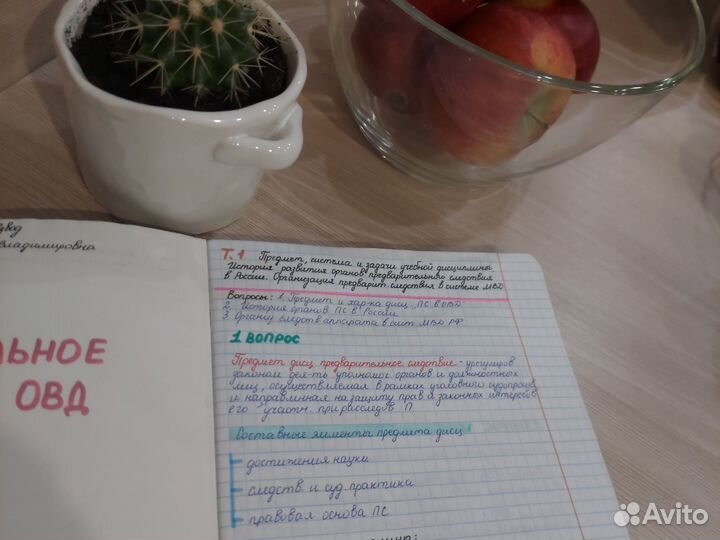 взвод
Владимировна
ЛЬНОЕ
ОВД
Т.1 Предмет, система и задачи учебной дисциплины.
История развития органов предварительного следствия
в России. Организация предварит. следствия в системе МВД
Вопросы: 1. Предмет и хар-ка дисц. ПС в ОВД
2. История органов ПС в России
3. Организ следств аппарата в сист. МВД РФ
1 ВОПРОС
Предмет дисц. предварительное следствие - урегулиров
законом деят-ть уполномоч органов и должностных
лиц, осуществляемая в рамках уголовного судопроизв
и направленная на защиту прав и законных интересов
его участн. при расследов. П
Составные элементы предмета дисц:
достижения науки
следств и суд. практика
правовая основа ПС
Avito